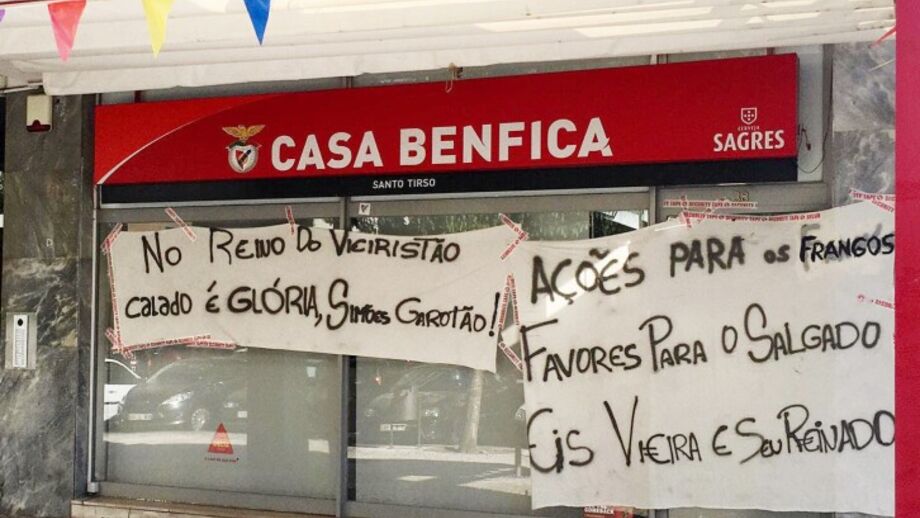 CASA BENFICA
SANTO TIRSO
CERVEJA
SAGRES
No REINO Do VIEIRISTÃO
CALADO É GLÓRIA, SIMÕES GAROTÃO!
AÇÕES PARA os FRANGOS
FAVORES PARA O SALGADO
EIS VIEIRA E SEU REINADO